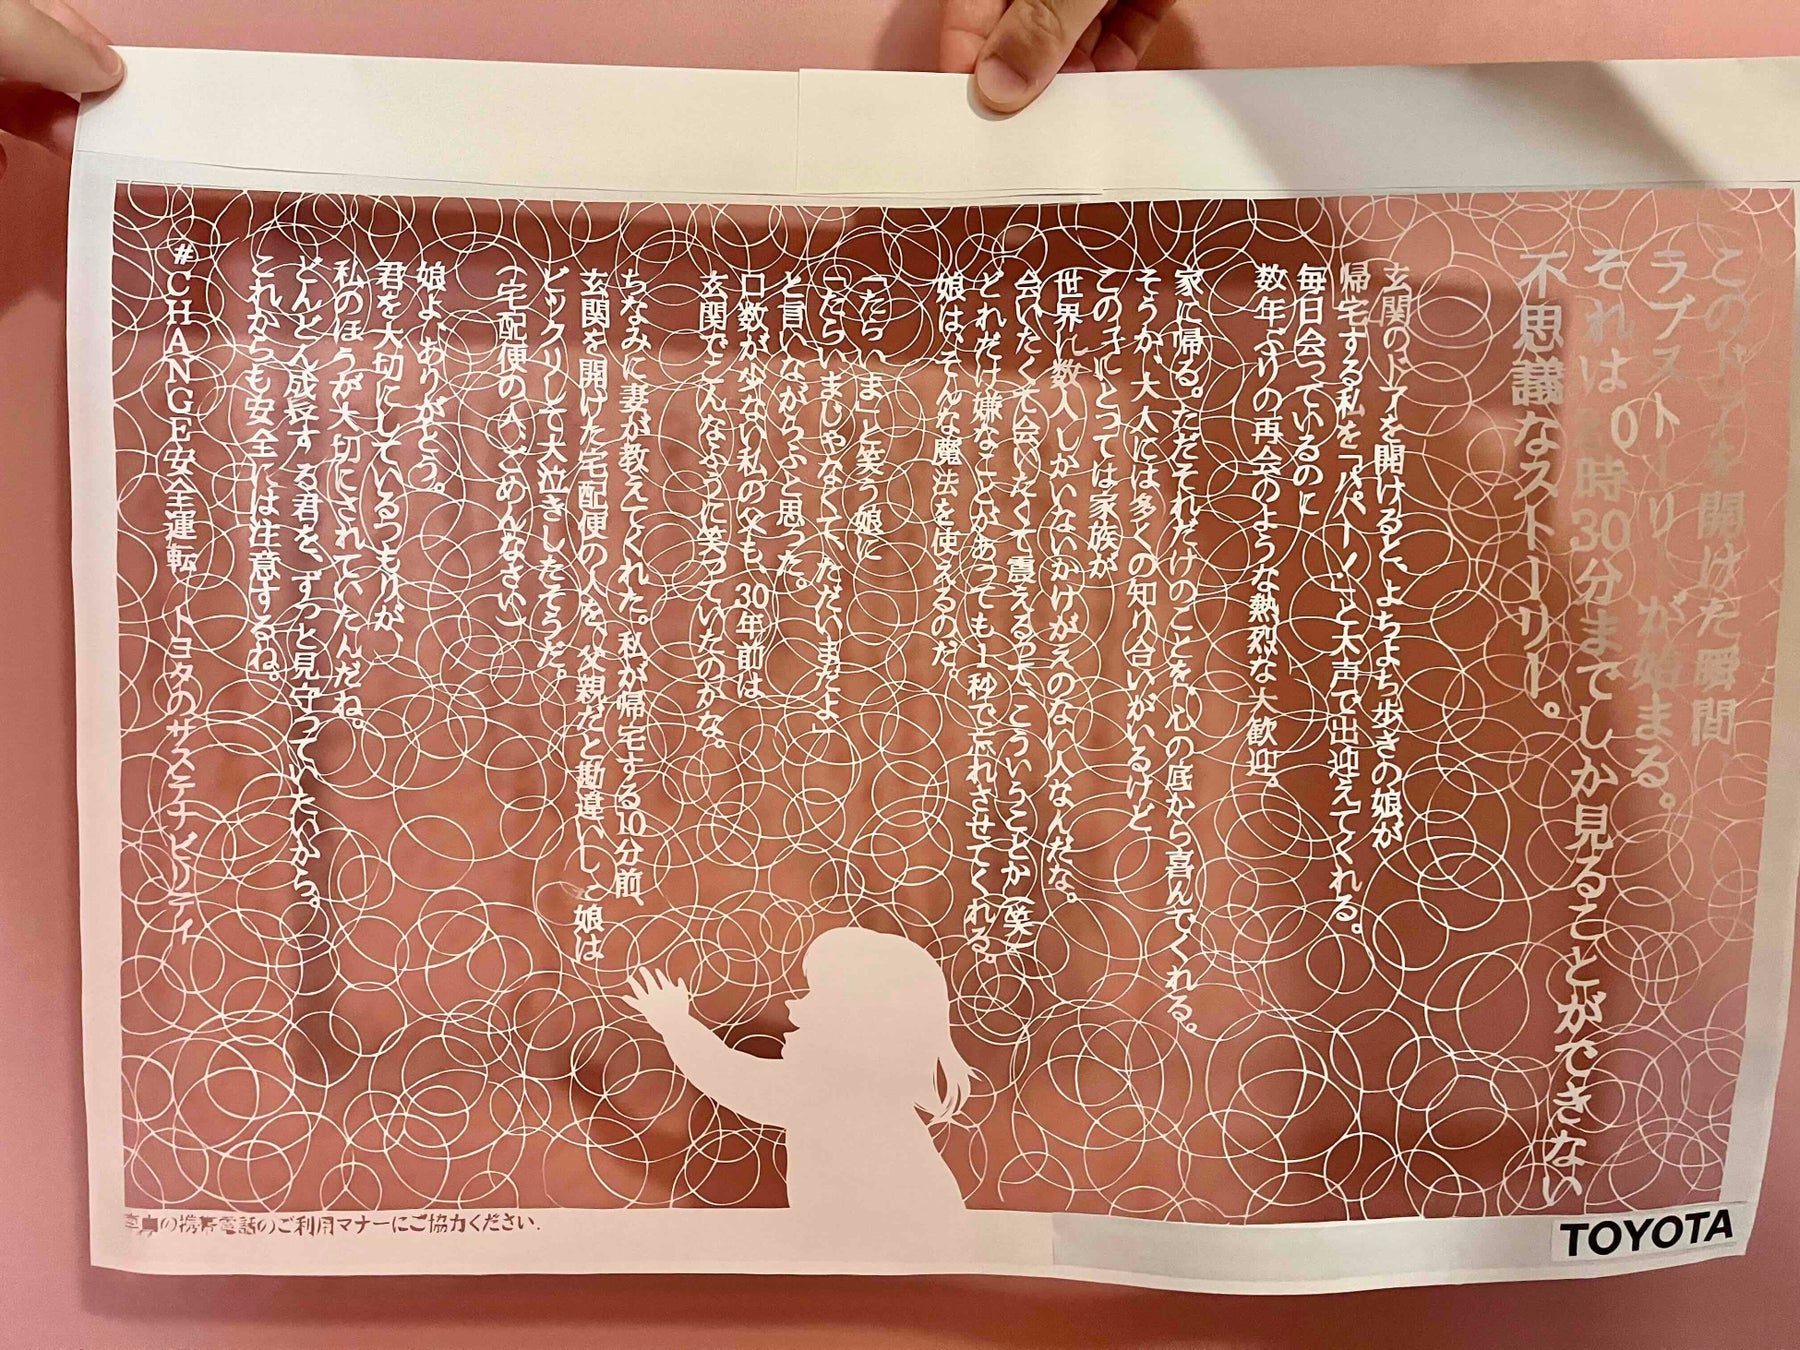 このドアを開けた瞬間
ラブストーリーが始まる。
それは20時30分までしか見ることができない
不思議なストーリー。
玄関のドアを開けると、よちよち歩きの娘が
帰宅する私を「パパー!」と大声で出迎えてくれる。
毎日会っているのに
数年ぶりの再会のような熱烈な大歓迎。
家に帰る。ただそれだけのことを、心の底から喜んでくれる。
そうか、大人には多くの知り合いがいるけど
この子にとっては家族が
世界に数人しかいないかけがえのない人なんだな。
会いたくて会いたくて震えるって、こういうことか(笑)
どれだけ嫌なことがあっても1秒で忘れさせてくれる。
娘は、そんな魔法を使えるのだ。
「たらいま」と笑う娘に
「たらいまじゃなくて、ただいまだよ」
と言いながらふと思った。
口数が少ない私の父も、30年前は
玄関でこんなふうに笑っていたのかな。
ちなみに妻が教えてくれた。私が帰宅する10分前、
玄関を開けた宅配便の人を、父親だと勘違いした娘は
ビックリして大泣きしたそうだ。
(宅配便の人、ごめんなさい)
娘よ、ありがとう。
君を大切にしているつもりが、
私のほうが大切にされていたんだね。
どんどん成長する君を、ずっと見守っていたいから。
これからも安全には注意するね。
#CHANGE安全運転 トヨタのサステナビリティ
車内の携帯電話のご利用マナーにご協力ください.
TOYOTA